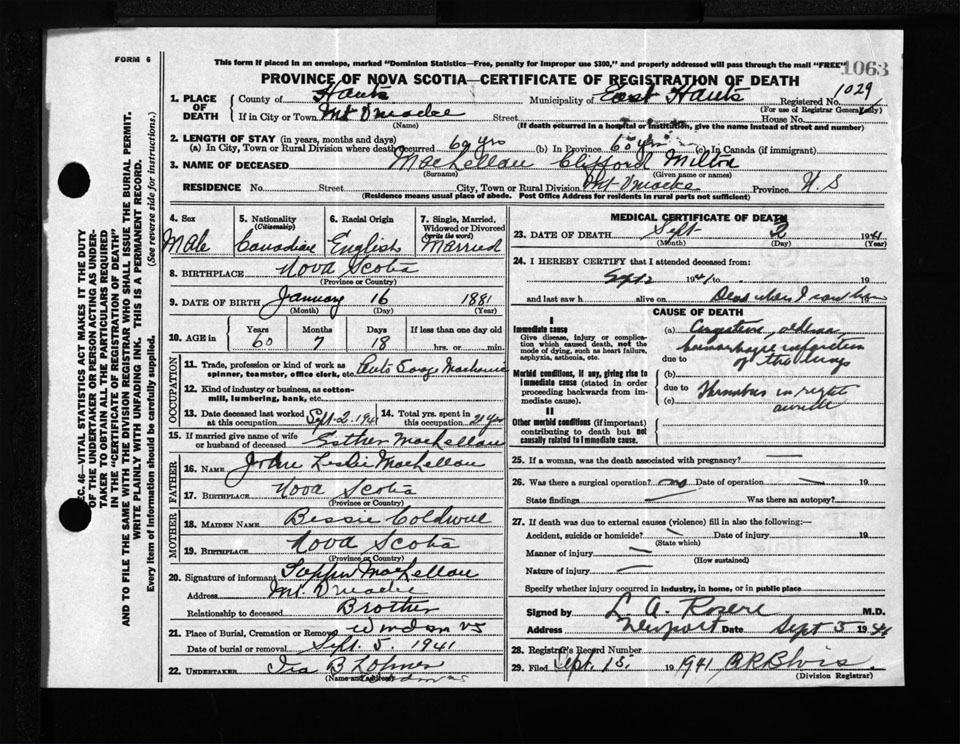 FORM 6
This form if placed in an envelope, marked "Dominion Statistics—Free, penalty for improper use $300," and properly addressed will pass through the mail "FREE"
1063
PROVINCE OF NOVA SCOTIA—CERTIFICATE OF REGISTRATION OF DEATH
1. PLACE OF DEATH
County of Hants Municipality of East Hants Registered No. 1029
(For use of Registrar General only)
If in City or Town Mt Uniacke Street House No.
(Name) (If death occurred in a hospital or institution, give the name instead of street and number)
2. LENGTH OF STAY (in years, months and days)
(a) In City, Town or Rural Division where death occurred 60 yrs (b) In Province 60 yrs (c) In Canada (if immigrant)
3. NAME OF DECEASED MacLellan Clifford Milton
(Surname) (Given name or names)
RESIDENCE No. Street City, Town or Rural Division Mt Uniacke Province N.S
(Residence means usual place of abode. Post Office Address for residents in rural parts not sufficient)
4. Sex Male
5. Nationality (Citizenship) Canadian
6. Racial Origin English
7. Single, Married, Widowed or Divorced (write the word) Married
8. BIRTHPLACE Nova Scotia
(Province or Country)
9. DATE OF BIRTH January 16 1881
(Month) (Day) (Year)
10. AGE in Years Months Days If less than one day old
60 7 18 hrs. or min.
OCCUPATION
11. Trade, profession or kind of work as spinner, teamster, office clerk, etc. Auto Mechanic
12. Kind of industry or business, as cotton-mill, lumbering, bank, etc.
13. Date deceased last worked at this occupation Sept. 2. 1941
14. Total yrs. spent in this occupation 21 yrs
15. If married give name of wife or husband of deceased Esther MacLellan
FATHER
16. NAME John Leslie MacLellan
17. BIRTHPLACE Nova Scotia
(Province or Country)
MOTHER
18. MAIDEN NAME Bessie Coldwell
19. BIRTHPLACE Nova Scotia
(Province or Country)
20. Signature of informant MacLellan
Address Mt. Uniacke
Relationship to deceased Brother
21. Place of Burial, Cremation or Removal Windsor NS
Date of burial or removal Sept. 5. 1941
22. UNDERTAKER Ira B
(Name and address) Windsor
MEDICAL CERTIFICATE OF DEATH
23. DATE OF DEATH Sept 2 1941
(Month) (Day) (Year)
24. I HEREBY CERTIFY that I attended deceased from:
Sept 2 1941 to 19
and last saw h alive on Dead when I saw him 19
CAUSE OF DEATH
I
Immediate cause
Give disease, injury or complication which caused death, not the mode of dying, such as heart failure, asphyxia, asthenia, etc.
(a) oedema
haemorrhagic infarction
due to of the lungs
Morbid conditions, if any, giving rise to immediate cause (stated in order proceeding backwards from immediate cause).
(b)
due to Thrombus in right
(c) auricle
II
Other morbid conditions (if important) contributing to death but not causally related to immediate cause.
25. If a woman, was the death associated with pregnancy? —
26. Was there a surgical operation? no Date of operation — 19
State findings Was there an autopsy?
27. If death was due to external causes (violence) fill in also the following:—
Accident, suicide or homicide? — Date of injury 19
(State which)
Manner of injury —
(How sustained)
Nature of injury —
Specify whether injury occurred in industry, in home, or in public place
Signed by L. A. M.D.
Address Newport Date Sept 5 1941
28. Registrar's Record Number
29. Filed Sept. 15. 1941
(Division Registrar)
SEC. 46—VITAL STATISTICS ACT MAKES IT THE DUTY
OF THE UNDERTAKER OR PERSON ACTING AS UNDERTAKER TO OBTAIN ALL THE PARTICULARS REQUIRED
IN THE "CERTIFICATE OF REGISTRATION OF DEATH"
AND TO FILE THE SAME WITH THE DIVISION REGISTRAR WHO SHALL ISSUE THE BURIAL PERMIT.
WRITE PLAINLY WITH UNFADING INK. THIS IS A PERMANENT RECORD.
Every item of information should be carefully supplied. (See reverse side for instructions.)